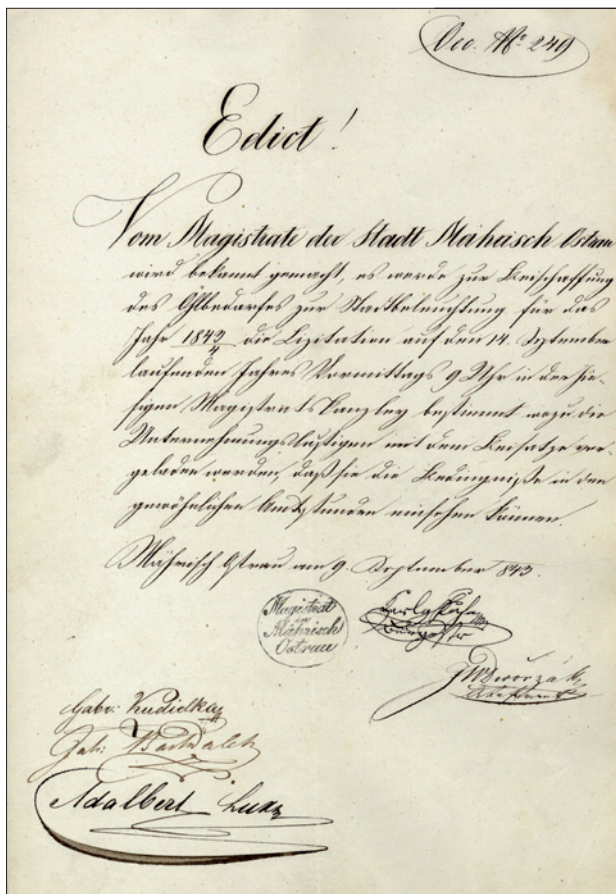 Oec. No 249
Edict!
Vom Magistrate der Stadt Mährisch Ostrau
wird bekannt gemacht, es werde zur Beischaffung
des Öhlbedarfes zur Stadtbeleuchtung für das
Jahr 1843/4 die Lizitation auf den 14. September
laufenden Jahres Vormittags 9 Uhr in der hie-
sigen Magistratskanzley bestimmt wozu die
Unternehmungslustigen mit dem Beisatze vor-
geladen werden, daß sie die Bedingniße in den
gewöhnlichen Amtsstunden einsehen können.
Mährisch Ostrau am 9. September 843.
Magistrat
in
Mährisch
Ostrau
Dworzak
Gabr: Kudielka
Joh:
Adalbert